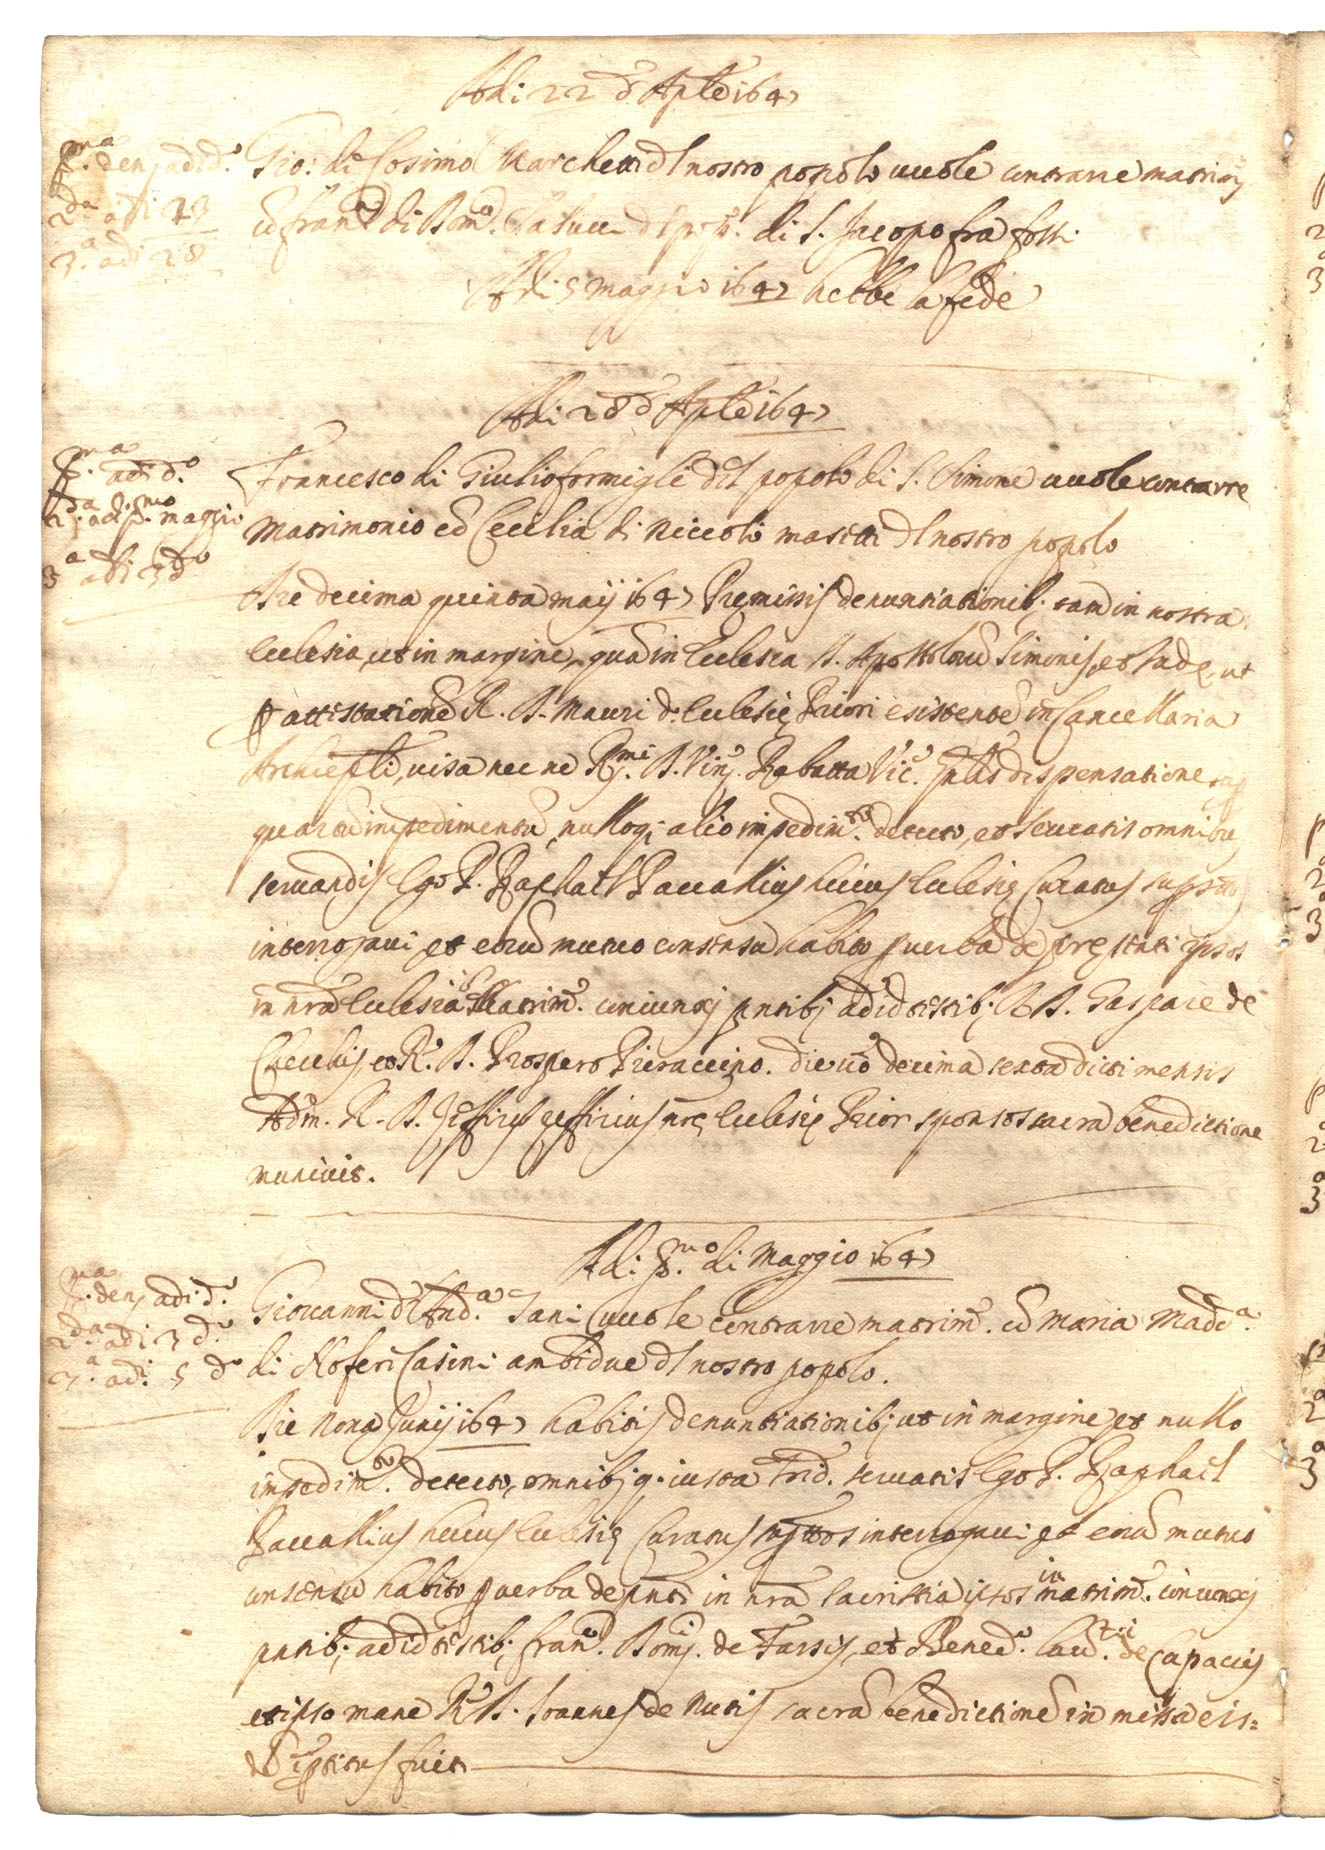 Adi 22 d Aple 1647
p.ma den. adi d.o
2.da adi 23
3.a adi 28
Gio: di Cosimo Marchetti dl nostro popolo vuole contrarre matrim
cō Fran.ca di Dom.co dl pop.o di S. Jacopo fra fossi
Adi 5 Maggio 1647 hebbe la fede
Adi 28 d Aple 1647
p.ma adi d.o
2.da adi p.mo maggio
3.a adi 3 d.o
Francesco di Giulio formigli del popolo di S. Simone vuole contrarre
Matrimonio cō Cecilia di Niccolò masetti dl nostro popolo
Die decima quinta maij 1647 Premissis denuntiationib; tam in nostra
Ecclesia, ut in margine, quā in Ecclesia S. Apostolorū Simonis, et Iudę, ut
p attistationē R. D. Mauri d. Ecclesię Priori existente in Cancellaria
Archiepli, visa nec ne R.mi D. Vinc. Rabatta Vic. gnlis dispensatione sup
quartū impedimentū, nulloq; alio impedim.to detecto, et servatis omnibus
servandis Ego P. Raphael Paccallius huius Ecclesię Curatus supttos
interrogavi, et eorū mutuo consensu habito p verba de pręsenti ipsos
in nrā Ecclesia in Matrim. coniunxi pntib; ad id testib; R. D. Gaspare de
Cecchis, et R. D. Prospero Pieraccino. die vō decima sexta dicti mensis
Adm. R. D. Zeffirus Zeffirius nrę Ecclesię Prior sponsos sacra benedictione
munivit.
Adi p.mo di Maggio 1647
p.ma den. adi d.o
2.da adi 3 d.o
3.a adi 5 d.o
Giovanni d And.a Tani vuole contrarre matrim. cō Maria Madd.a
di Noferi Casini ambidue dl nostro popolo.
Die nona Junij 1647 habitis denuntiationib; ut in margine, et nullo
impedim.to detecto, omnibq; iuxta Trid. servatis Ego P. Raphael
Paccallius huius Ecclesię Curatus supttos interrogavi, et eorū mutuo
consensu habito p verba de pnti in nrā sacristia ipsos in matrim. coniunxi
pntib; ad id testib; Fran.o Domi. de Tarsis, et Bened.o Laur.tii de Capaccis
et ipso mane R. D. Joannes de Nutis sacrā benedictionē in missa eis=
d impertitus fuit